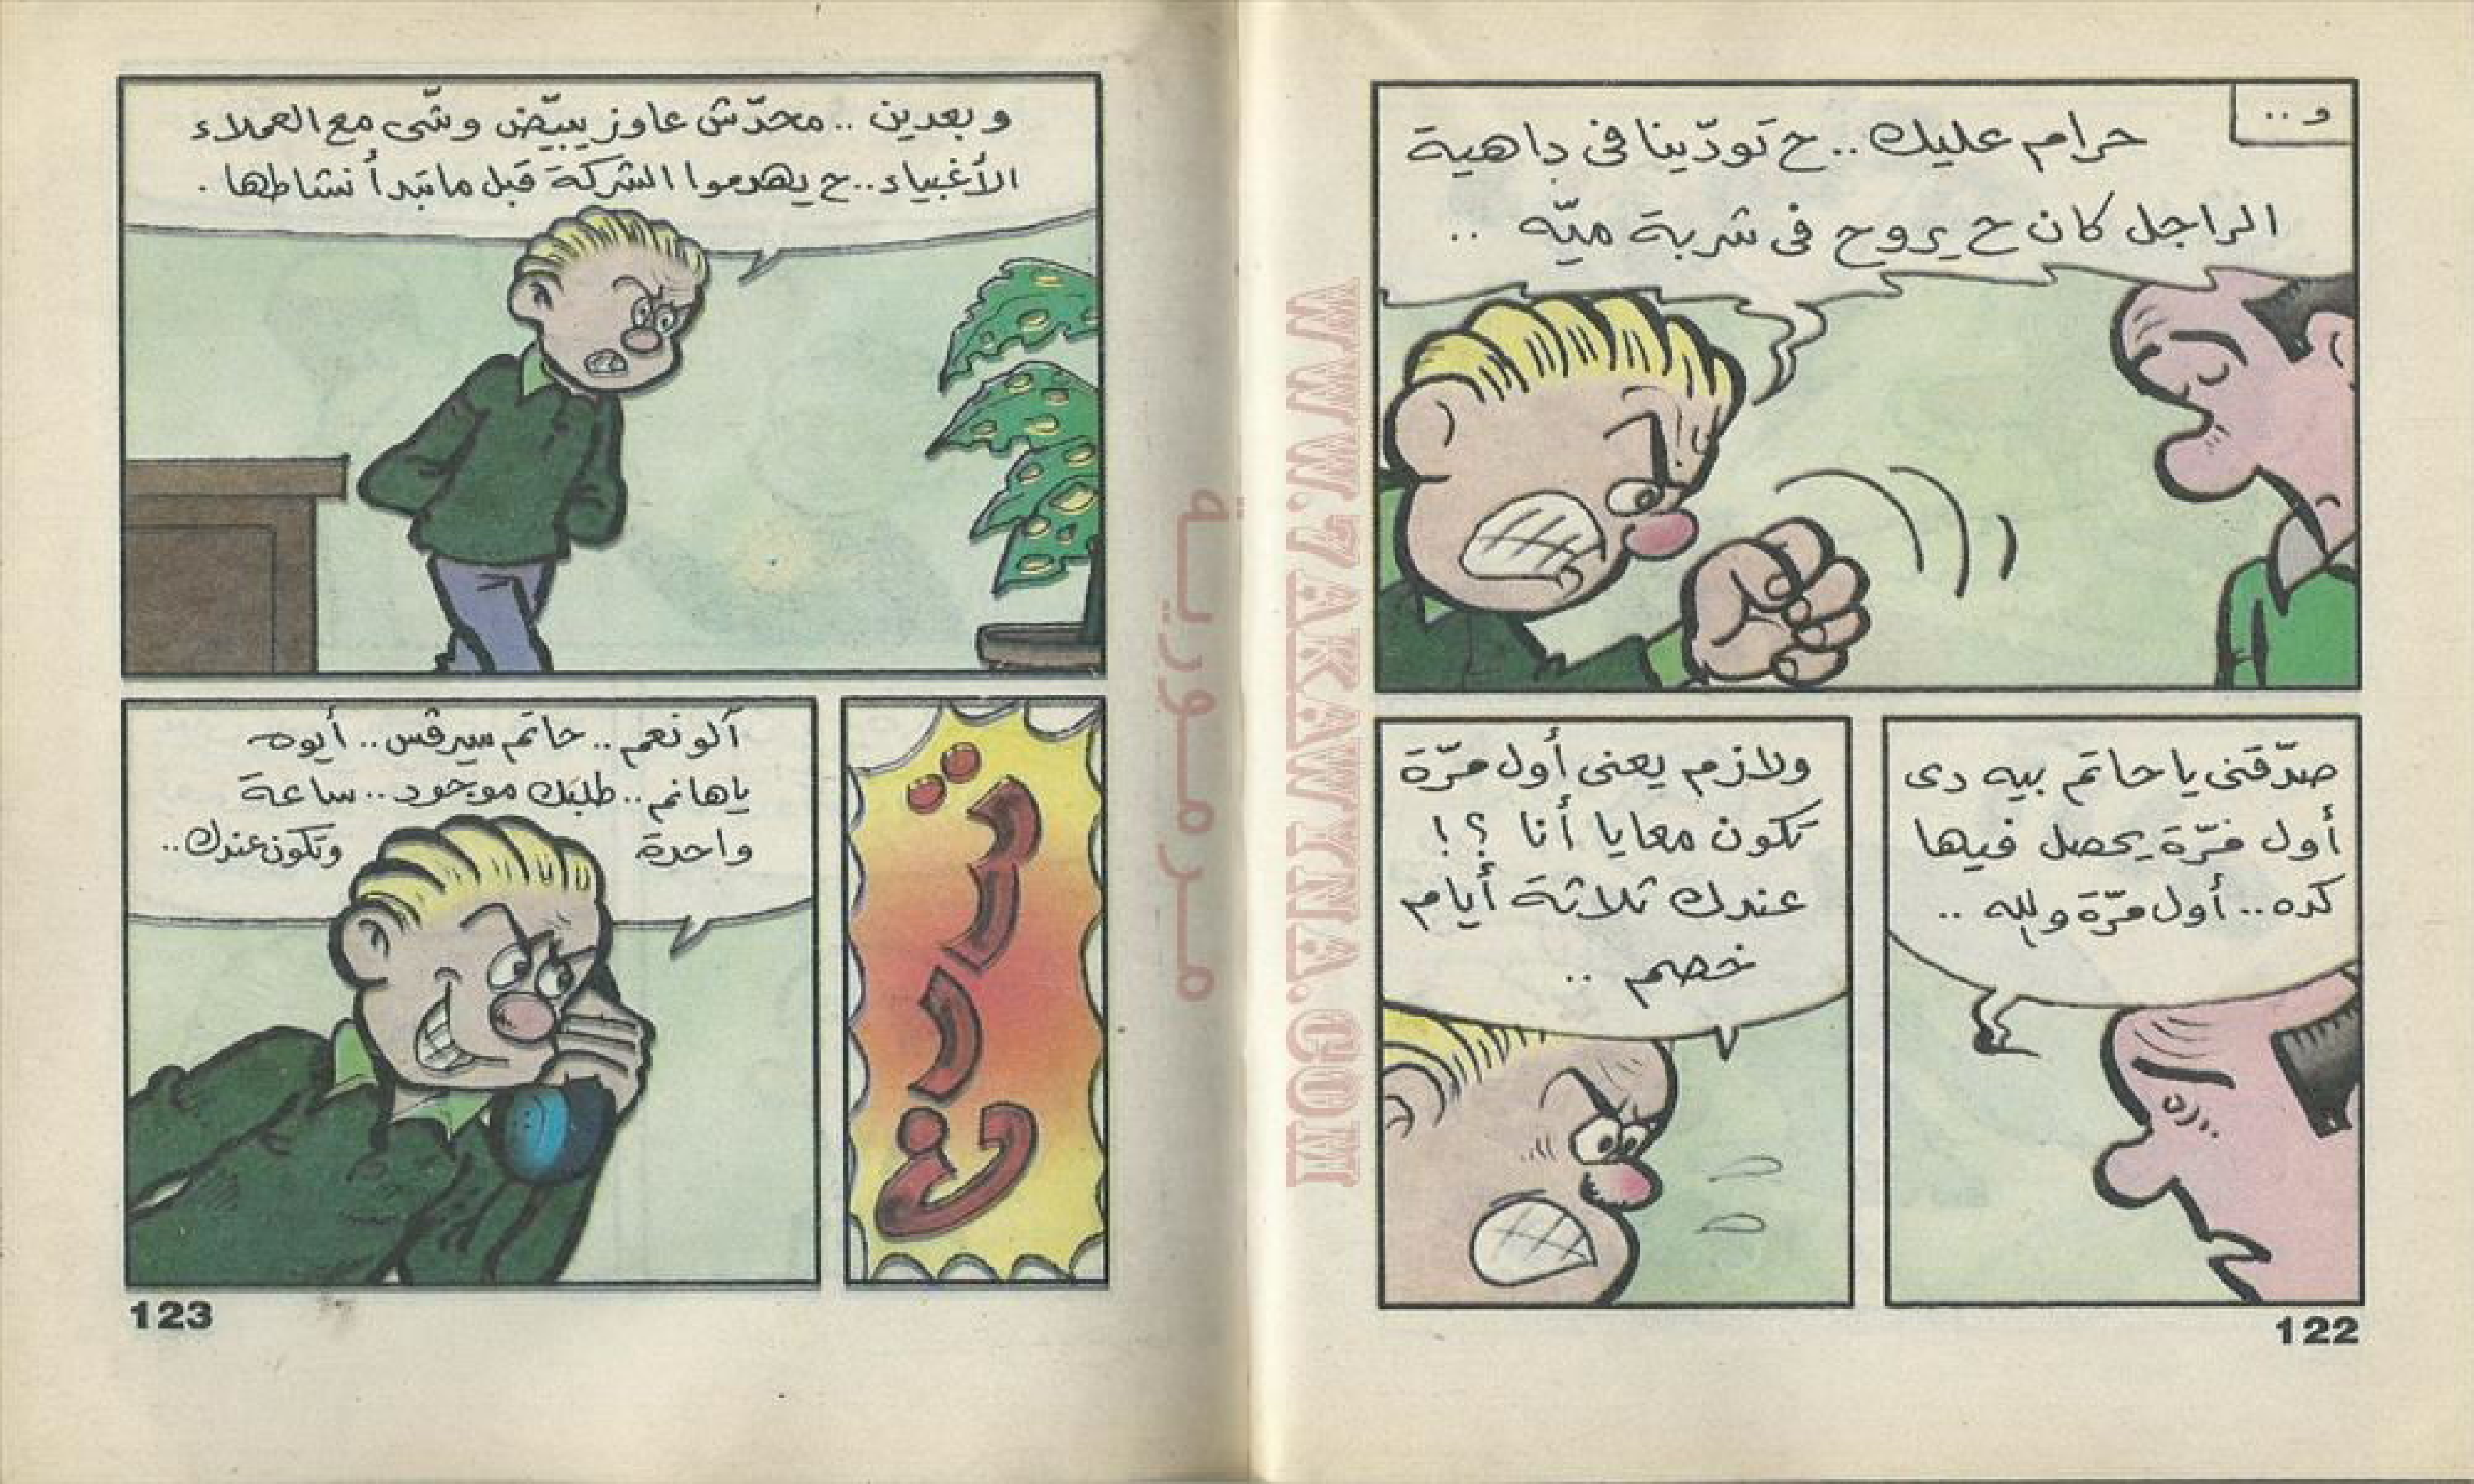 و ..
حرام عليك .. ح تودّينا فى داهية
الراجل كان ح يروح فى شربة ميّه ..
صدّقنى يا حاتم بيه دى
أول مرّة يحصل فيها
كده .. أول مرّة والله ..
ولازم يعنى أول مرّة
تكون معايا أنا ؟!
عندك ثلاثة أيام
خصم ..
122
وبعدين .. محدّش عاوز يبيّض وشّى مع العملاء
الأغبياء .. ح يهدموا الشركة قبل ما تبدأ نشاطها .
ترررن
آلو نعم .. حاتم سيرڤس .. أيوه
يا هانم .. طلبك موجود .. ساعة
واحدة وتكون عندك ..
123
مرمورية
WWW.7AKAWINA.COM